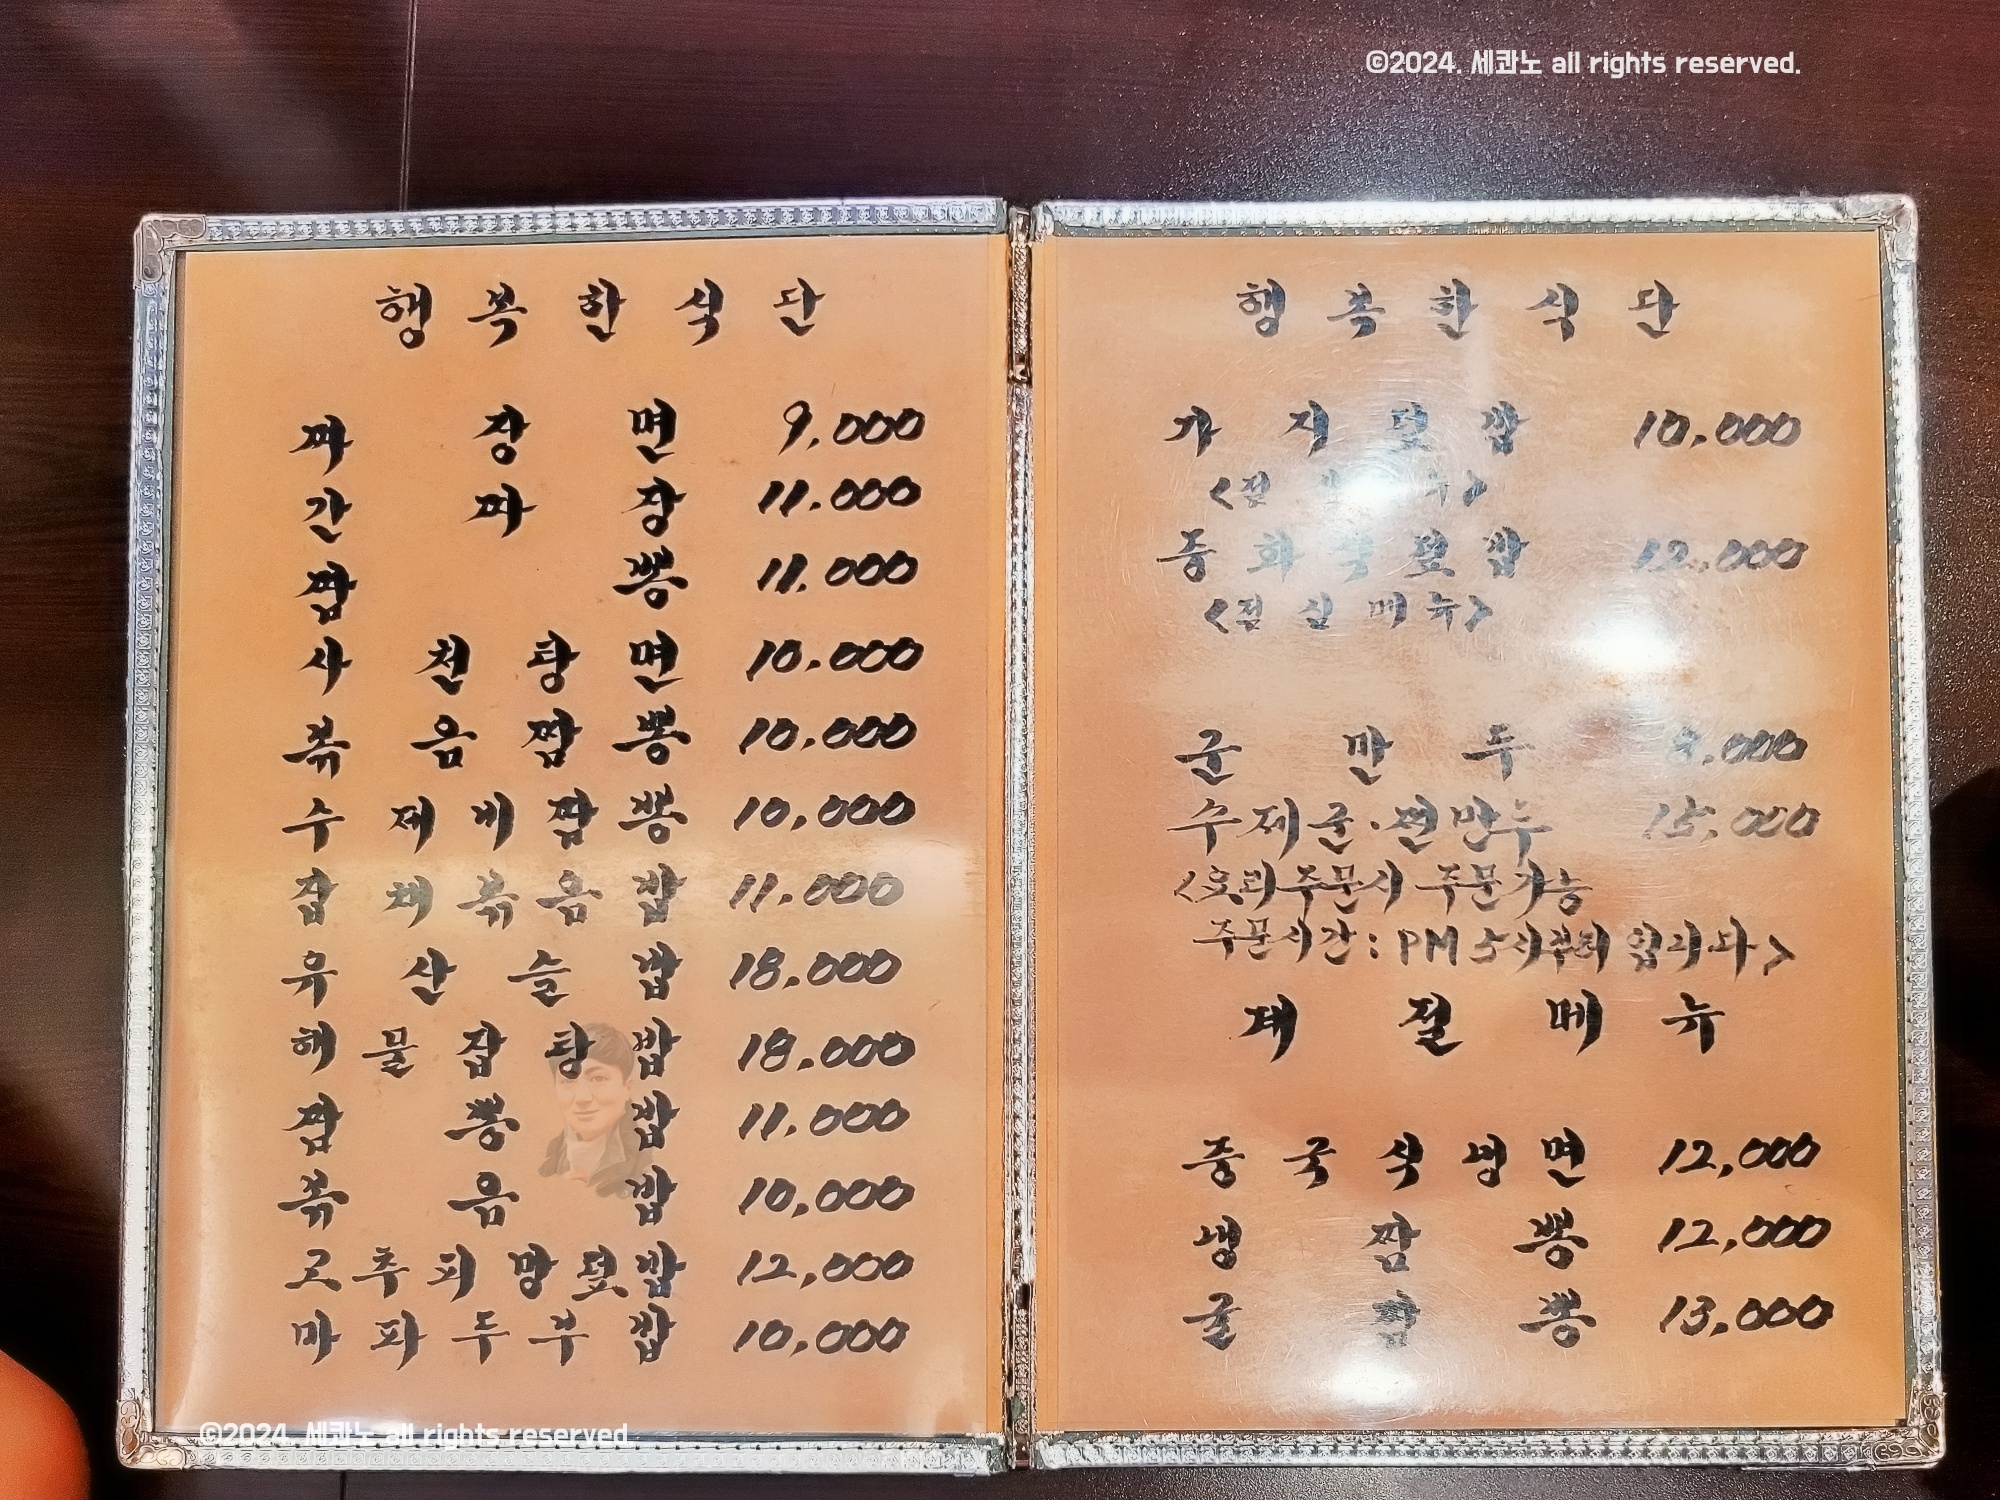 ©2024. 세콴노 all rights reserved.
행복한식단
짜장면 9,000
간짜장 11.000
짬뽕 11.000
사천탕면 10.000
볶음짬뽕 10,000
수제비짬뽕 10,000
잡채볶음밥 11.000
유산슬밥 18.000
해물잡탕밥 18.000
짬뽕밥 11.000
볶음밥 10,000
고추피망덮밥 12,000
마파두부밥 10,000
©2024. 세콴노 all rights reserved
행복한식단
가지덮밥 10,000
<점 뉴>
중화 덮밥 12,000
<점심메뉴>
군만두 ,000
수제군·찐만두 15,000
<요리주문시 주문가능
주문시간 : PM 5시부터 입니다>
계절메뉴
중국식냉면 12,000
냉짬뽕 12,000
굴짬뽕 13,000